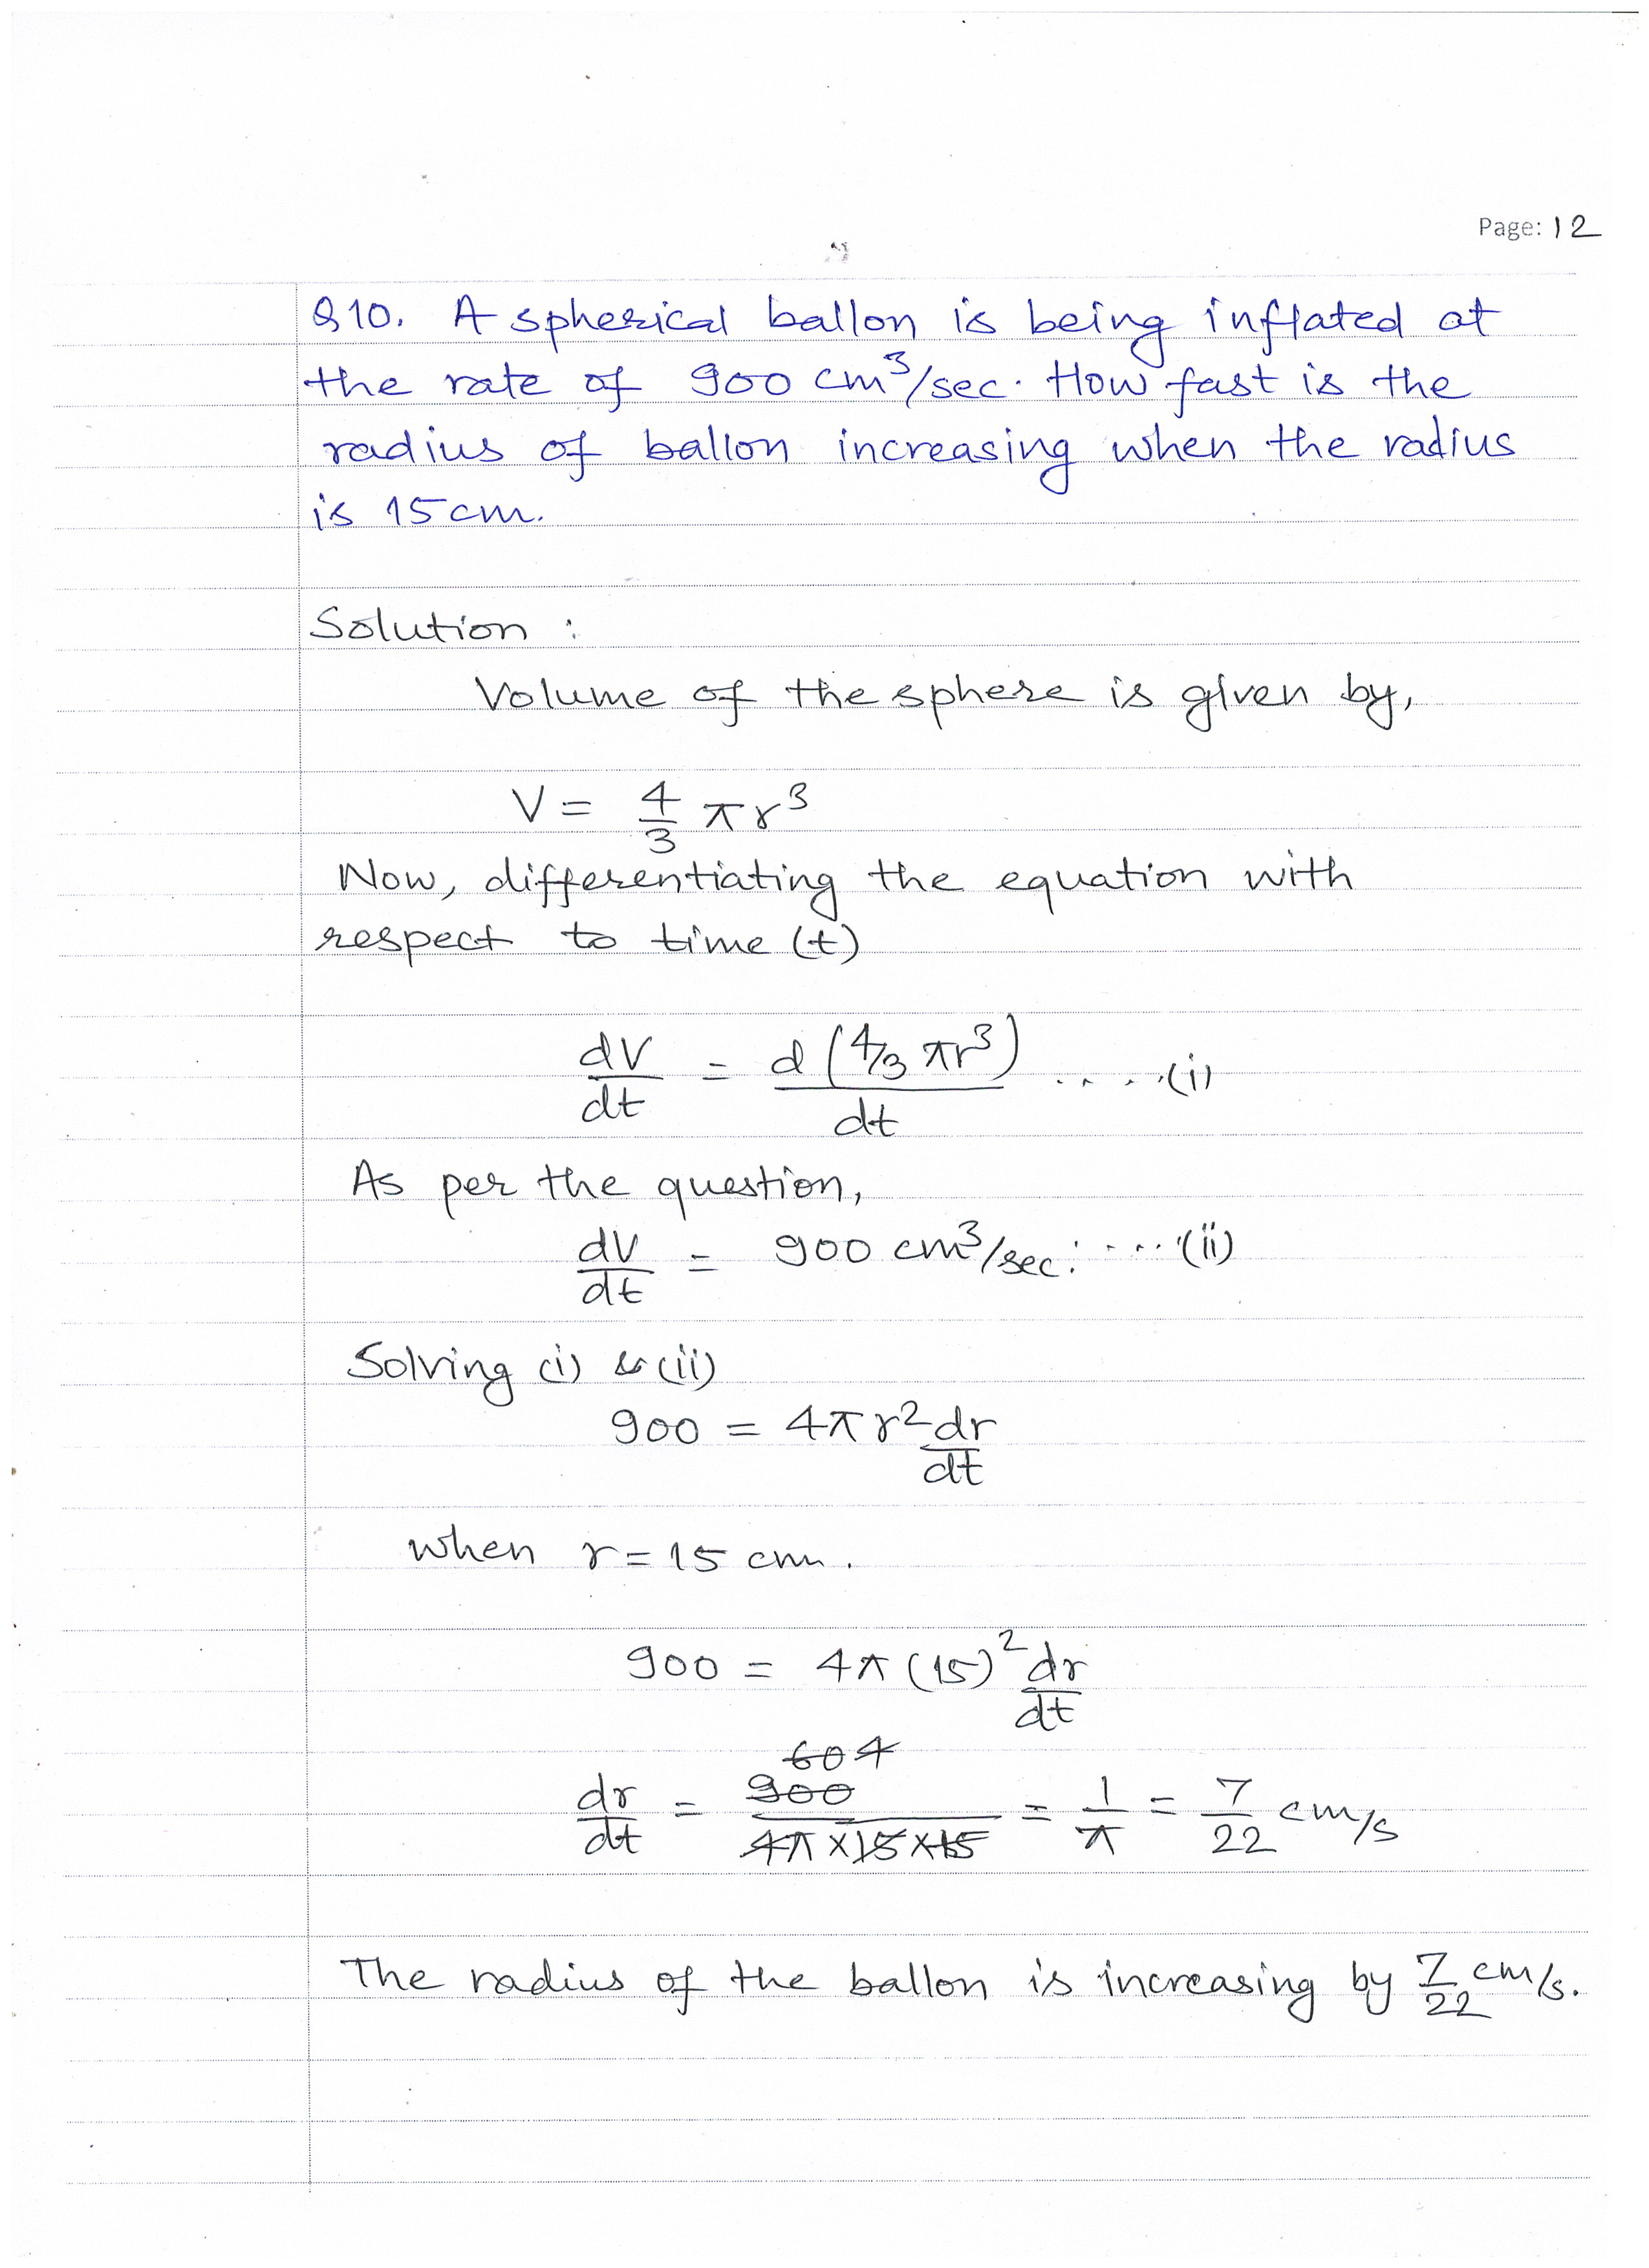 Page: 12
Q10. A spherical ballon is being inflated at
the rate of 900 cm³/sec. How fast is the
radius of ballon increasing when the radius
is 15 cm.
Solution :
Volume of the sphere is given by,
V = 4/3 πr³
Now, differentiating the equation with
respect to time (t)
dV/dt = d(4/3 πr³)/dt .....(i)
As per the question,
dV/dt = 900 cm³/sec. ....(ii)
Solving (i) & (ii)
900 = 4πr² dr/dt
when r = 15 cm.
900 = 4π(15)² dr/dt
60 4
dr/dt = 900/4π×15×15 = 1/π = 7/22 cm/s
The radius of the ballon is increasing by 7/22 cm/s.